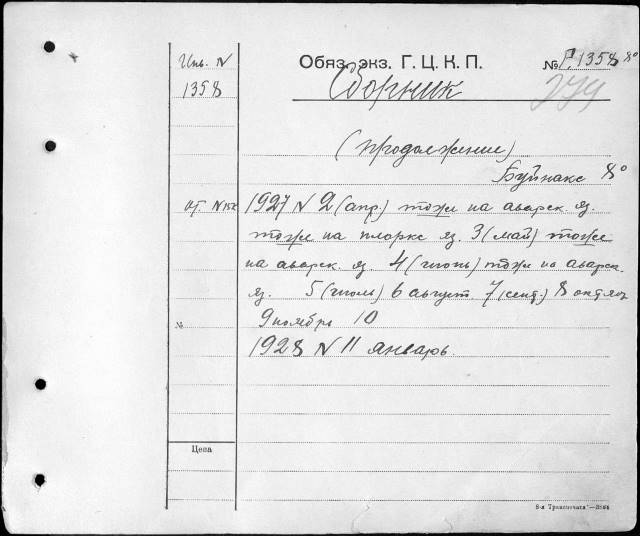 Инв. N
1358
Обяз. экз. Г. Ц. К. П.
№ Г.1358 8°
Сборник
279
(продолжение)
Буйнакс 8°
1927 N 2 (апр.) тоже на аварск яз.
тоже на яз. 3 (май) тоже
на аварск. яз. 4 (июнь) тоже на аварск.
яз. 5 (июль) 6 август 7 (сент.) 8 октяб
№
9 ноябрь 10
1928 N 11 январь.
Цена
8-я Транспечать